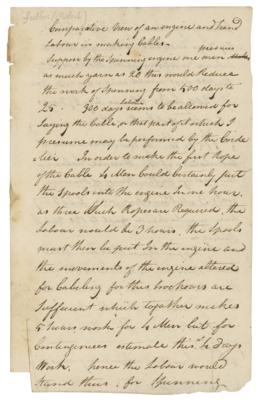 Comparative View of an engine and hand
Labour in making Cables
presum
Suppose by the Spinning engine one man
as much yarn as 20 this would Reduce
the work of Spinning from 500 days to
25. 300 days seems to be allowed for
Laying the Cable, or that part of which I
presume may be performed by the Corde
lier. In order to make the first Rope
of the Cable 4 Men Could Certainly put
the Spools into the engine in one hour,
as three Such Ropes are Required, the
Labour would be 3 hours, the Spools
must then be put in the engine and
the movements of the engine altered
for Cabeling for this two hours are
Sufficient which together makes
5 hours work for 4 Men but for
Contingences estimate this days
Work. hence the Labour would
Stand thus. for Spinning